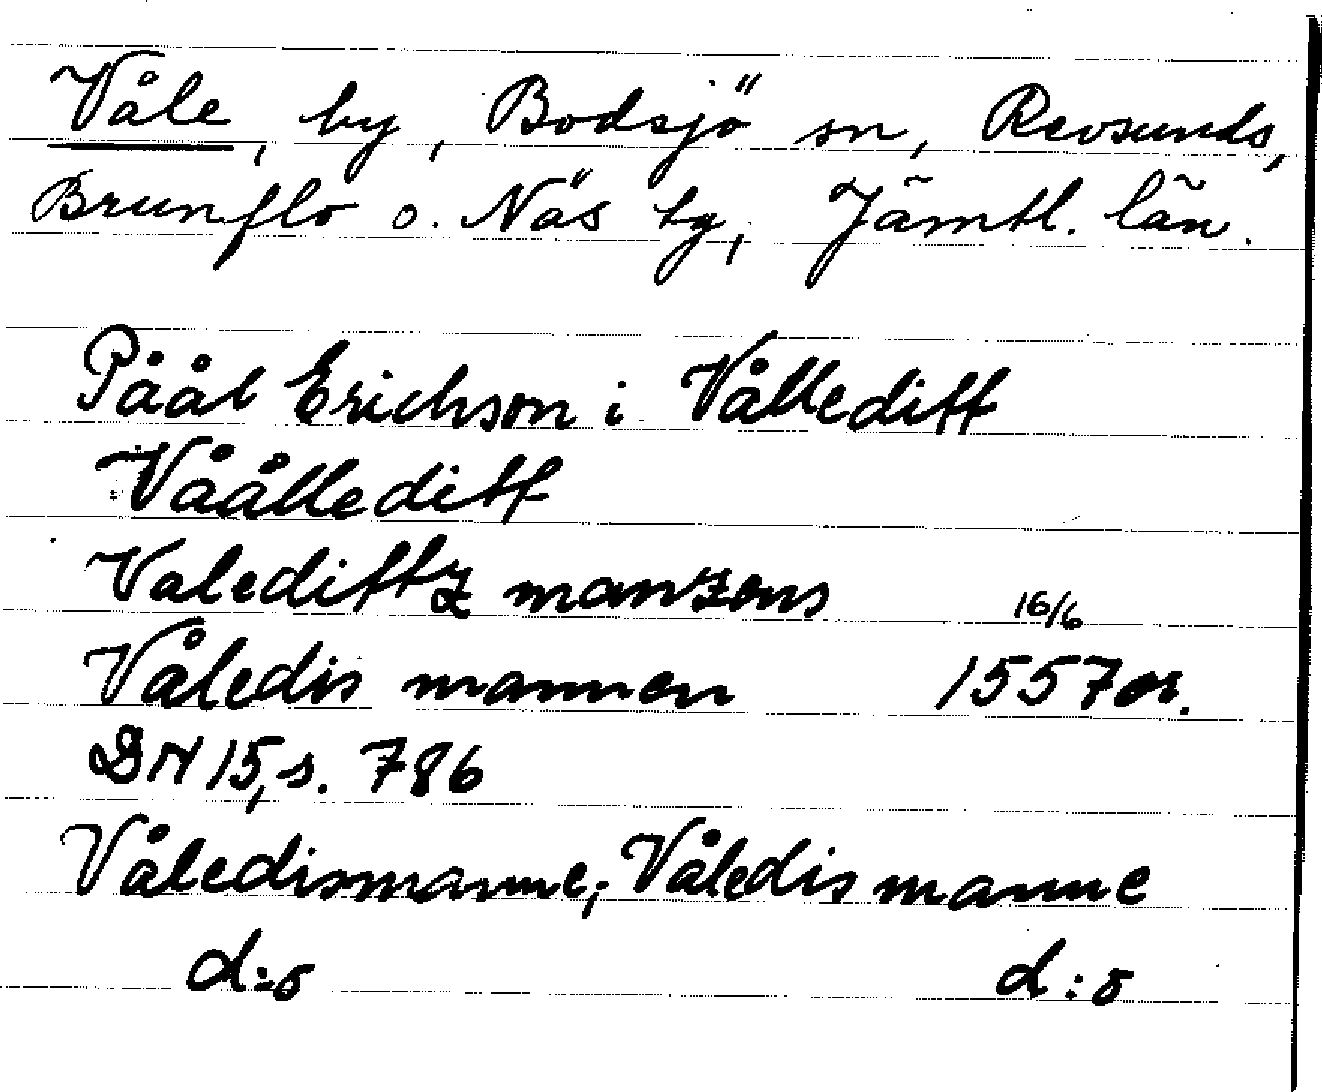 Våle, by, Bodsjö sn, Revsunds,
Brunflo o. Näs tg, Jämtl. län.
Påål Erichson i Vålleditt
Våålleditt
Valedittz manzons 16/6
Våledis mannen 1557 or.
DN 15, s. 786
Våledismanne; Våledis manne
d:o d:o